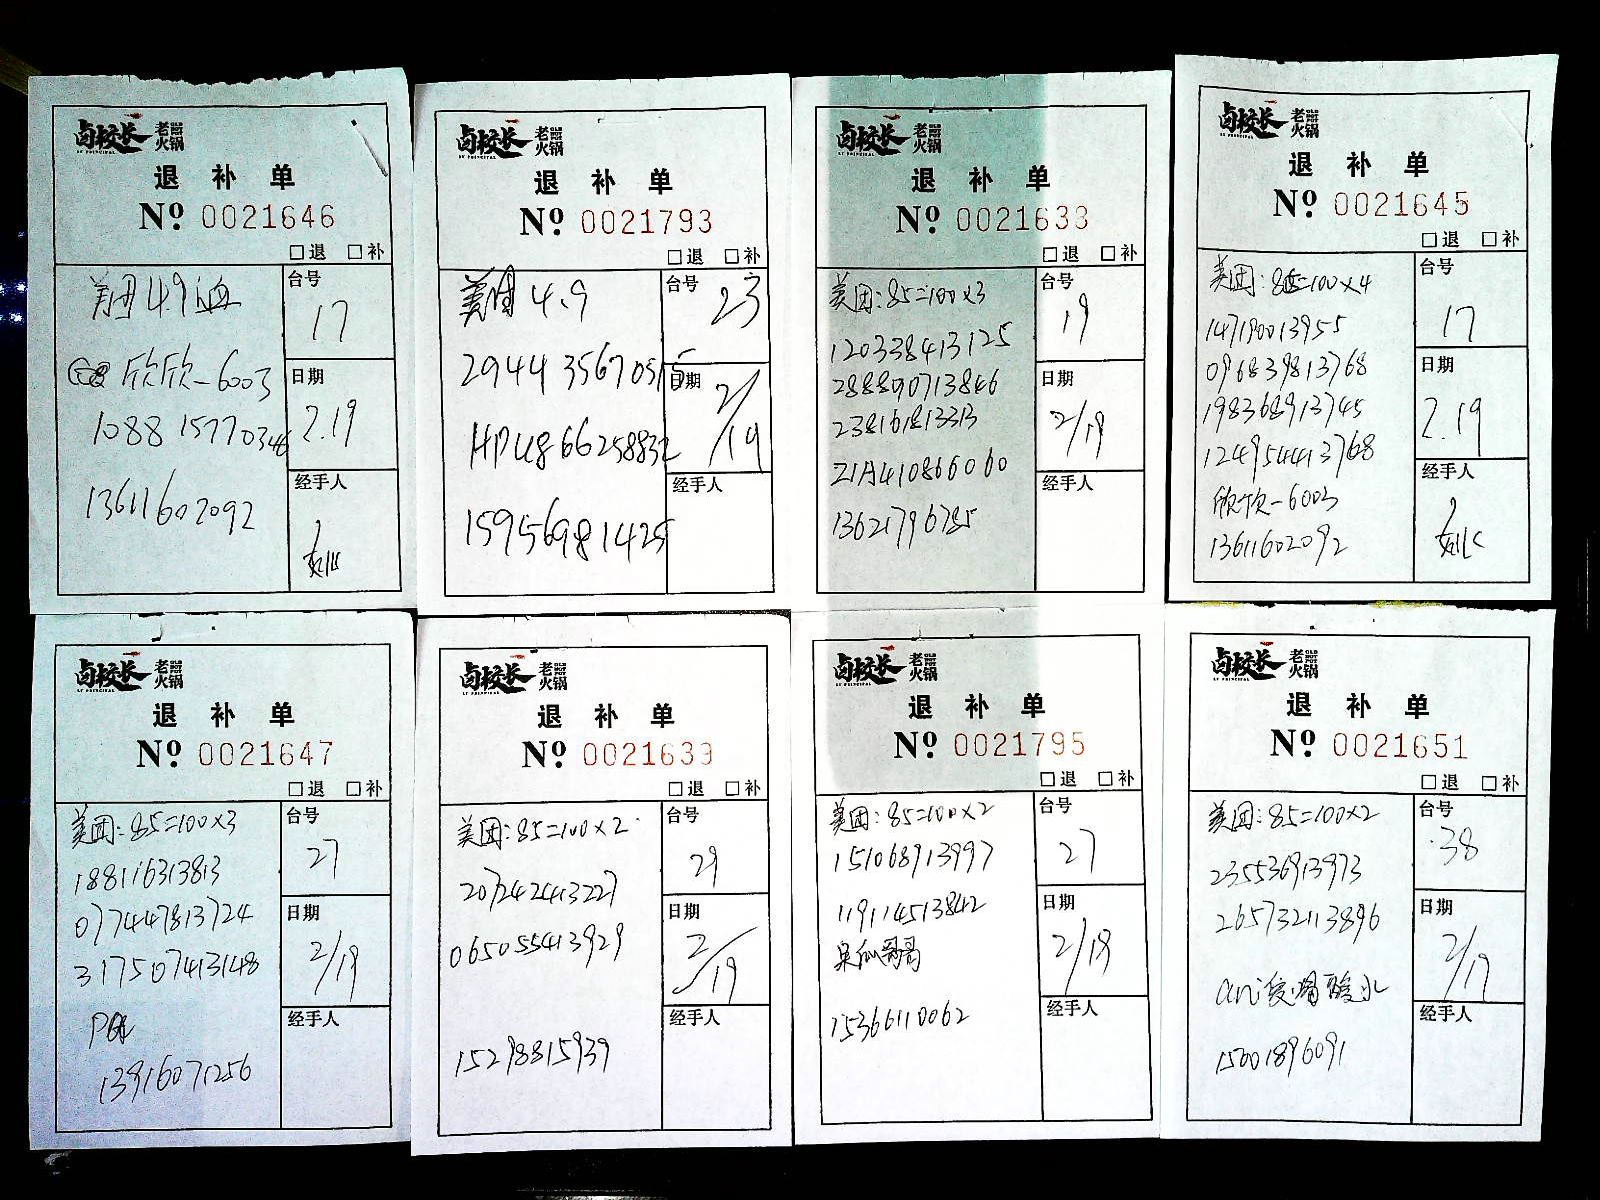 卤校长 老火锅
LU PRINCIPAL
退 补 单
Nº 0021646
□退 □补
美团 4.9
欣欣-6003
1088 15770346
13611602092
台号
17
日期
2.19
经手人
卤校长 老火锅
LU PRINCIPAL
退 补 单
Nº 0021793
□退 □补
美团 4.9
2944 35670515
HPU866258832
15956981425
台号
23
日期
2/19
经手人
卤校长 老火锅
退 补 单
Nº 0021633
□退 □补
美团:85=100×3
120338413125
288890713846
238161813313
21A410866060
13621796785
台号
19
日期
2/19
经手人
卤校长 老火锅
LU PRINCIPAL
退 补 单
Nº 0021645
□退 □补
美团:85=100×4
147190013955
096839813768
198368913745
124954413768
欣欣-6003
13611602092
台号
17
日期
2.19
经手人
卤校长 老火锅
LU PRINCIPAL
退 补 单
Nº 0021647
□退 □补
美团:85=100×3
188116313813
077447813724
317507413148
13916071256
台号
27
日期
2/19
经手人
卤校长 老火锅
LU PRINCIPAL
退 补 单
Nº 0021639
□退 □补
美团:85=100×2
207242413227
065055413929
15298815939
台号
29
日期
2/19
经手人
卤校长 老火锅
LU PRINCIPAL
退 补 单
Nº 0021795
□退 □补
美团:85=100×2
151068913997
119114513842
15366110062
台号
27
日期
2/19
经手人
卤校长 老火锅
LU PRINCIPAL
退 补 单
Nº 0021651
□退 □补
美团:85=100×2
235536913973
265732113896
15001896091
台号
38
日期
2/19
经手人